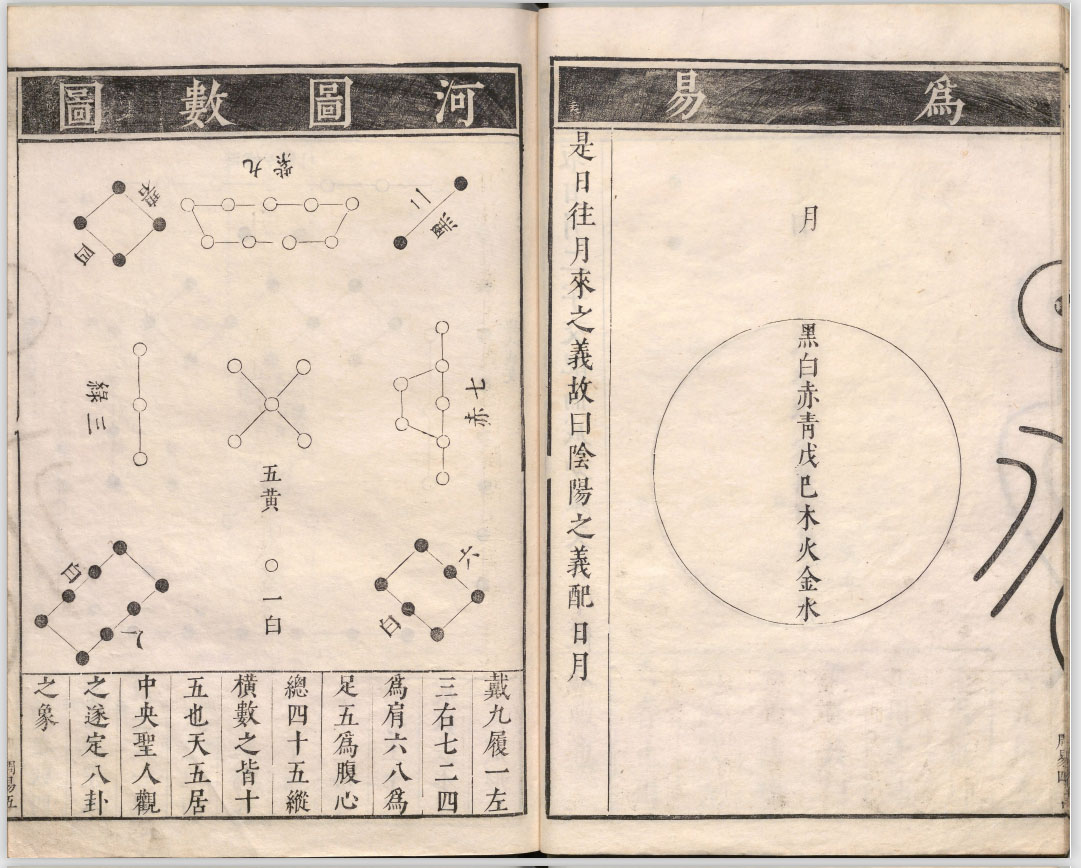 爲易
月
黑白赤青戊己木火金水
是日往月來之義故曰陰陽之義配日月
河圖數圖
九紫
二黑
四碧
七赤
五黃
三綠
六白
一白
八白
戴九履一左
三右七二四
爲肩六八爲
足五爲腹心
總四十五縱
橫數之皆十
五也天五居
中央聖人觀
之遂定八卦
之象